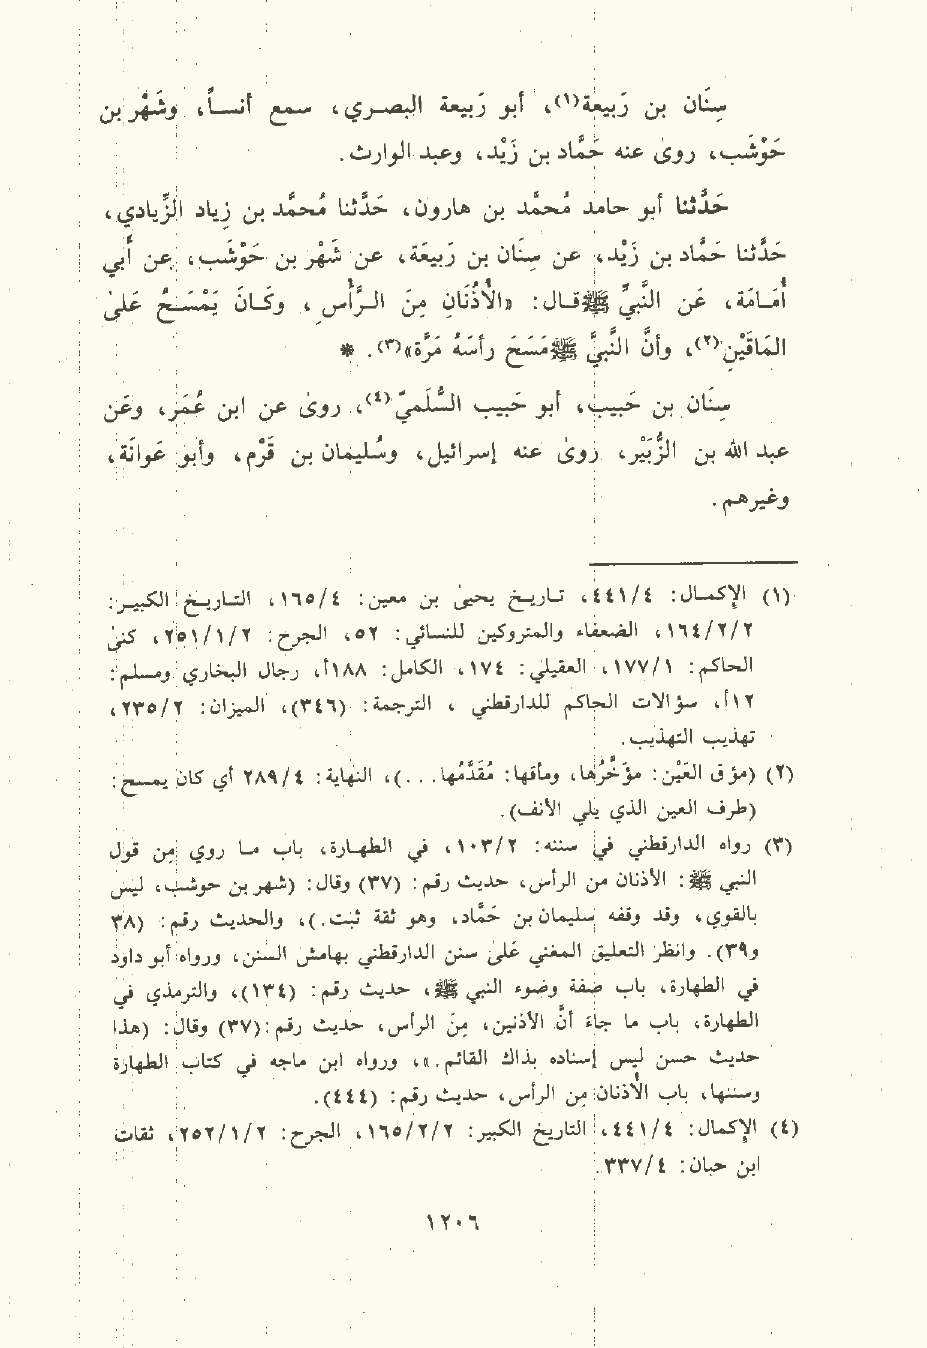 سِنَان بن رَبيعة(١)، أبو رَبيعة البصـري، سمع أنسـاً، وشَهْر بن
حَوْشَب، روى عنه حمَّاد بن زَيْد، وعبد الوارث.
حَدَّثنا أبو حامد مُحمَّد بن هارون، حَدَّثنا مُحمَّد بن زِياد الزِّيادي،
حَدَّثنا حَمَّاد بن زَيْد، عن سِنَان بن رَبيعَة، عن شَهْر بن حَوْشَب، عن أبي
أُمَامَة، عَن النَّبيِّ ﷺ قـال: «الأُذُنَان مِنَ الـرَّأس، وكَـانَ يَمْسَـحُ عَلىٰ
المَاقَيْنِ(٢)، وأنَّ النَّبيَّ ﷺ مَسَحَ رأسَهُ مَرَّة»(٣). *
سِنَان بن حَبيب، أبو حَبيب السُّلَميّ(٤)، روىٰ عن ابن عُمَر، وعَن
عبد الله بن الزُّبَيْر، روىٰ عنه إسرائيل، وسُليمان بن قَرْم، وأبو عَوانَة،
وغيرهم.
(١) الإكمـال: ٤٤١/٤، تـاريـخ يحيىٰ بن معين: ١٦٥/٤، التـاريـخ الكبيـر:
١٦٤/٢/٢، الضعفاء والمتروكين للنسائي: ٥٢، الجرح: ٢٥١/١/٢، كنىٰ
الحاكم: ١٧٧/١، العقيلي: ١٧٤، الكامل: ١٨٨أ، رجال البخاري ومسلم:
١٢أ، سؤالات الحاكم للدارقطني، الترجمة: (٣٤٦)، الميزان: ٢٣٥/٢،
تهذيب التهذيب.
(٢) (مؤق العَيْن: مؤَخَّرُها، ومأقها: مُقَدَّمُها...)، النهاية: ٢٨٩/٤ أي كان يمسح:
(طرف العين الذي يلي الأنف).
(٣) رواه الدارقطني في سننه: ١٠٣/٢، في الطهارة، باب ما روي مِن قول
النبي ﷺ: الأذنان من الرأس، حديث رقم: (٣٧) وقال: (شهر بن حوشب، ليس
بالقوي، وقد وقفه سليمان بن حَمَّاد، وهو ثقة ثبت.)، والحديث رقم: (٣٨
و٣٩). وانظر التعليق المغني عَلىٰ سنن الدارقطني بهامش السنن، ورواه أبو داود
في الطهارة، باب صفة وضوء النبي ﷺ، حديث رقم: (١٣٤)، والترمذي في
الطهارة، باب ما جاءَ أنَّ الأذنين، مِنَ الرأس، حديث رقم: (٣٧) وقال: (هذا
حديث حسن ليس إسناده بذاك القائم.»، ورواه ابن ماجه في كتاب الطهارة
وسننها، باب الأذنان مِن الرأس، حديث رقم: (٤٤٤).
(٤) الإكمال: ٤٤١/٤، التاريخ الكبير: ١٦٥/٢/٢، الجرح: ٢٥٢/١/٢، ثقات
ابن حبان: ٣٣٧/٤.
١٢٠٦